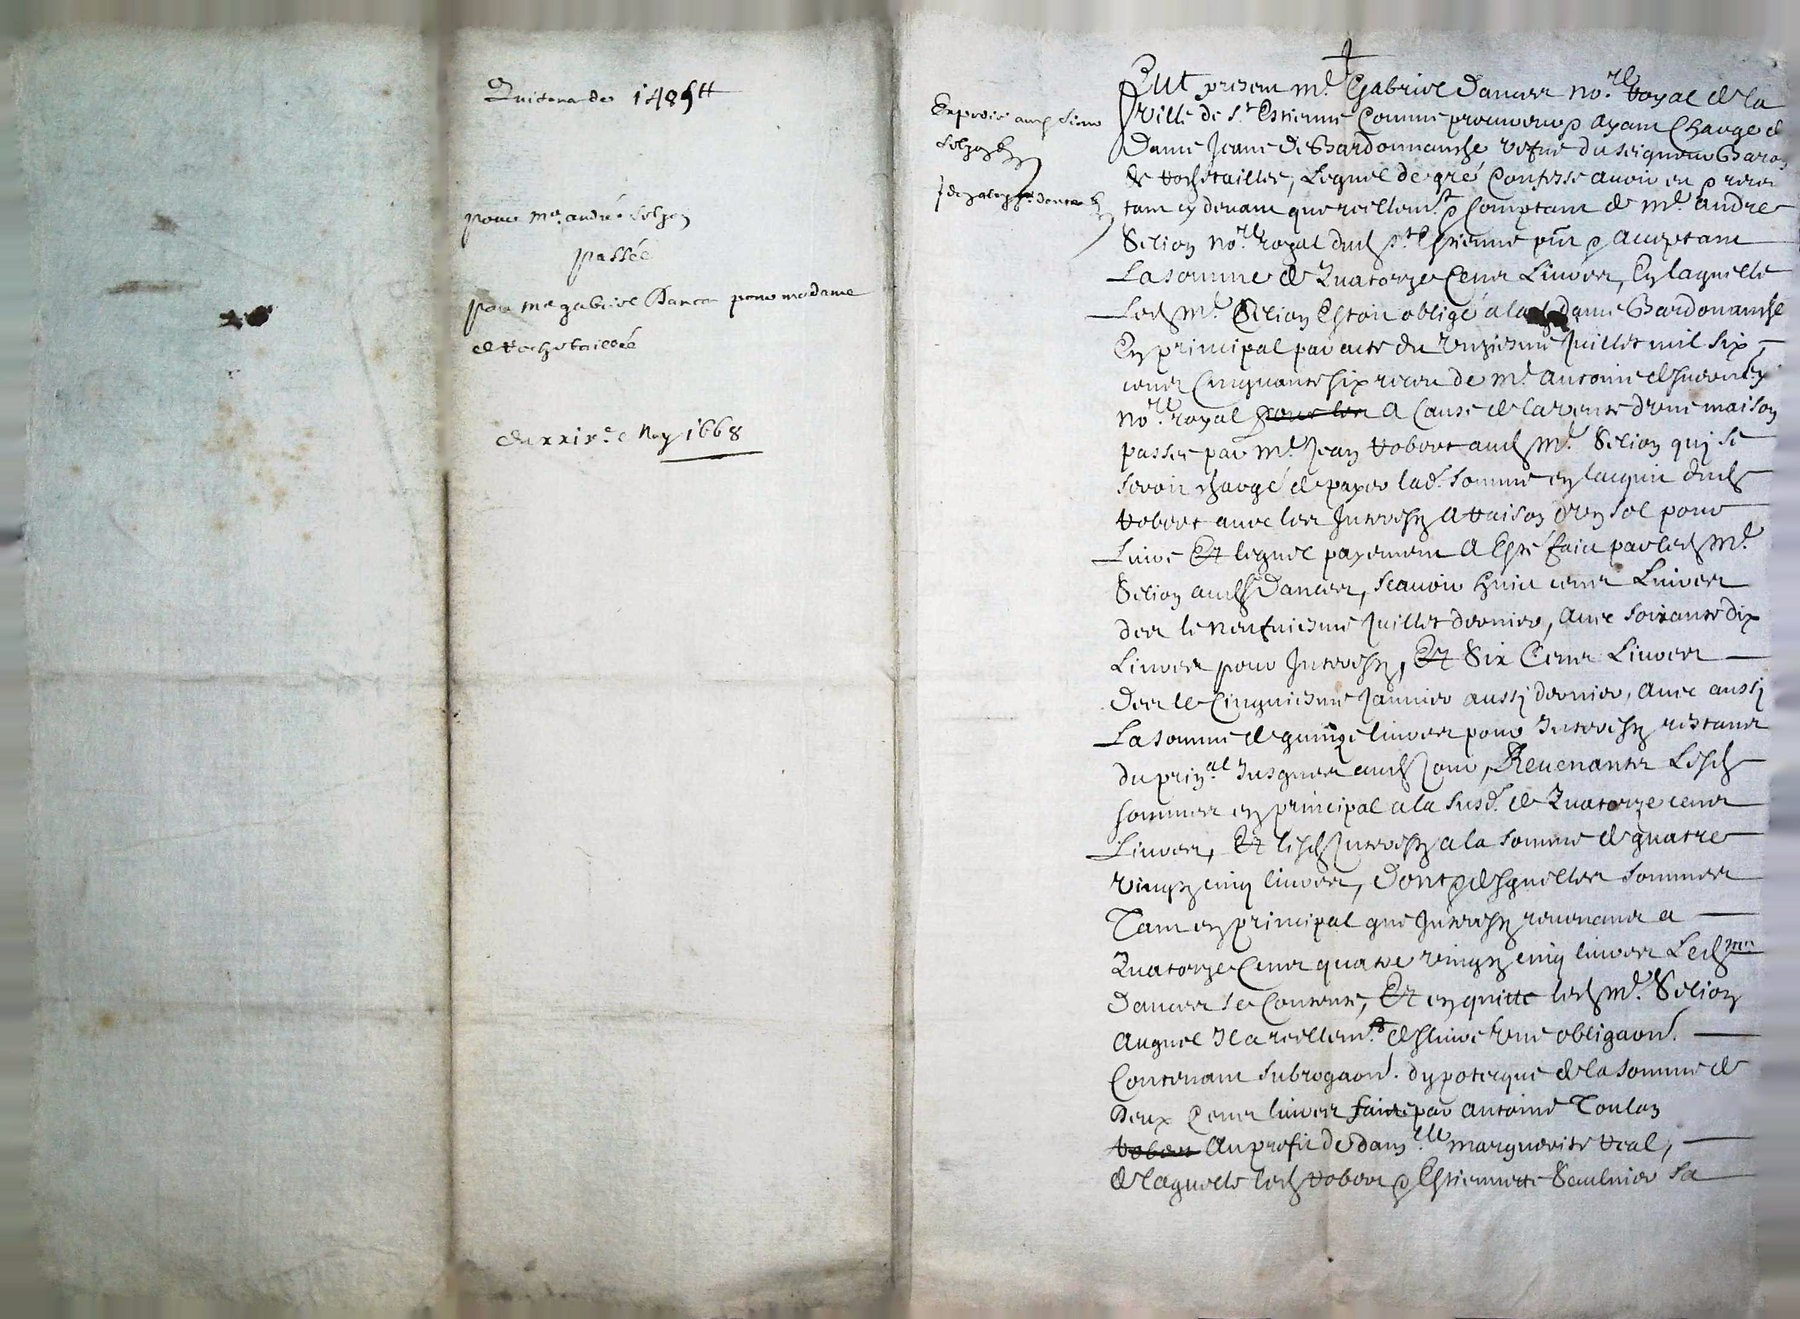 Quitance de 1485tt
pour Me. andré Selyon
passée
par Me gabriel Dancer pour madame
de Rochetaillée
du xxixe. May 1668
Expedié aud sieur
Selyon
Fut present Me. Gabriel Dancer nore. Royal de la
ville de St Estienne Comme procureur & ayant Charge de
Dame Jeane de Bardonnanche vefue du seigneur Baron
de Rochetaillee, Lequel de gré Confesse auoir eu & receu
tant cy deuant que reellemt. & Comptant de Me. André
Selion nore. royal dud St. Estienne pnt & acceptant
La somme de Quatorze Cents Liures, En laquelle
Led Me. Selion Estoit obligé a lad dame Bardonanche
En principal par acte du Unziesme Juillet mil six
cents Cinquante six receu de Me. Antoine
nore. royal pour les A Cause de la vente d'vne maison
passee par Me. Jean Robert aud Me. Selion qui se
seroit chargé de payer lad. somme en lacquit dud
Robert auec les Interestz A Raison d'un sol pour
Liure Et lequel payement A Esté faict par led Me.
Selion aud Sr Dancer, scauoir huict cents Liures
des le neufuiesme Juillet dernier, auec soixante dix
Liures pour Interestz, Et Six Cents Liures
Des le Cinquiesme Januier aussy dernier, auec aussy
La somme de quinze liures pour Interestz restants
du prinal. Jusques aud Jour, Reuenants Lesd
sommes en principal a la susd. de Quatorze cents
Liures, Et lesd Interestz a la somme de quatre
vingtz cinq liures, Dont & desquelles sommes
Tant en principal que Interestz reuenants a
Quatorze Cents quatre vingtz cinq liures Led Me
Dancer se Contente, Et en quitte led Me. Selion
Auquel Il a reellemt. deliuré vne obligaon.
Contenant subrogaon. dypotecque de la somme de
Deux Cents liures faicte par Antoine Toulon
Robert Au profit de damlle. Marguerite Real,
de laquelle led Robert & Estiennette Saulnier sa